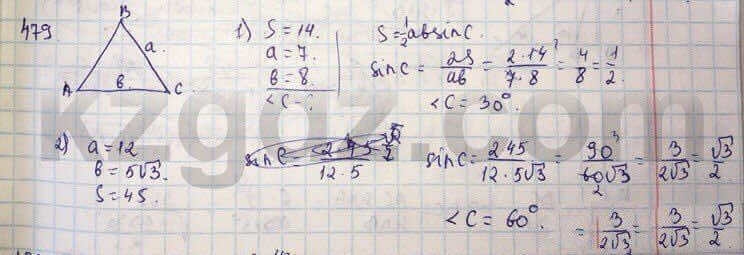 479
B
a
A в C
1) S = 14.
a = 7.
в = 8.
<C - ?
S = 1/2 ab sin C.
sin C = 2S/ab = 2·14/7·8 = 4/8 = 1/2.
<C = 30°.
2) a = 12
в = 5√3.
S = 45.
sin C = 2·45/12·5√3 = 90/60√3 = 3/2√3 = √3/2
<C = 60°. = 3/2√3 = 3/2√3 = √3/2
kzgdz.com